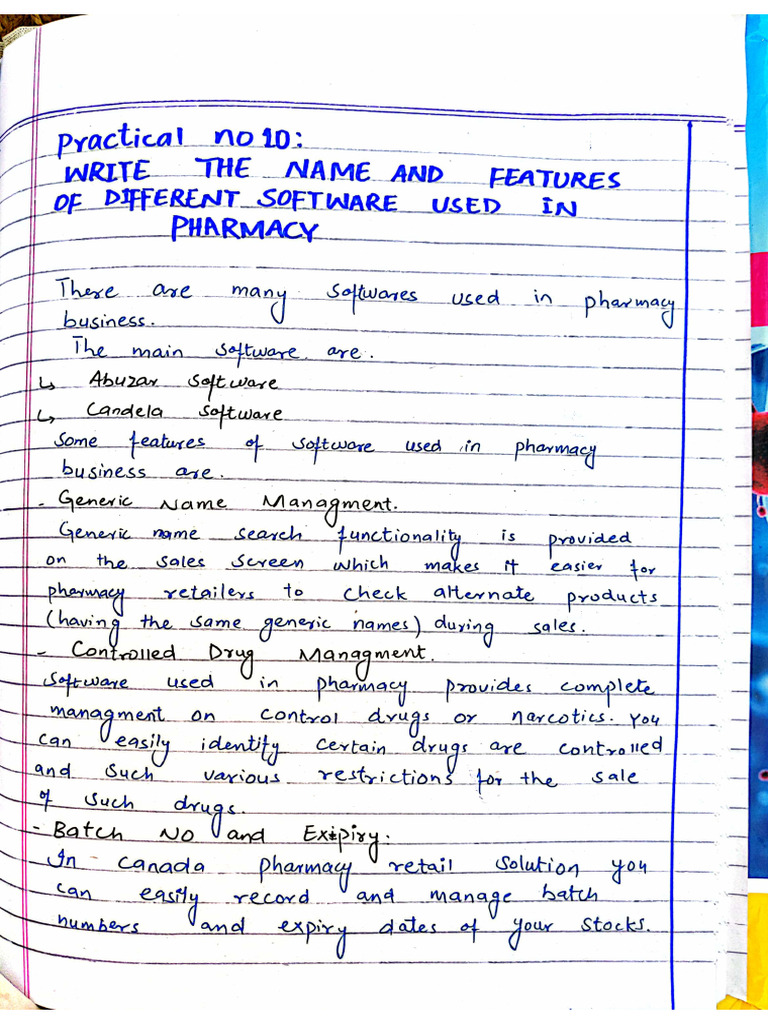 Practical no 10:
WRITE THE NAME AND FEATURES
OF DIFFERENT SOFTWARE USED IN
PHARMACY
There are many softwares used in pharmacy
business.
The main software are.
↳ Abuzar Software
↳ Candela Software
Some features of software used in pharmacy
business are.
- Generic Name Managment.
Generic name search functionality is provided
on the sales screen which makes it easier for
pharmacy retailers to check alternate products
(having the same generic names) during sales.
- Controlled Drug Managment.
Software used in pharmacy provides complete
managment on control drugs or narcotics. You
can easily identify certain drugs are controlled
and such various restrictions for the sale
of such drugs.
- Batch No and Expiry:
In Canada pharmacy retail solution you
can easily record and manage batch
numbers and expiry dates of your stocks.